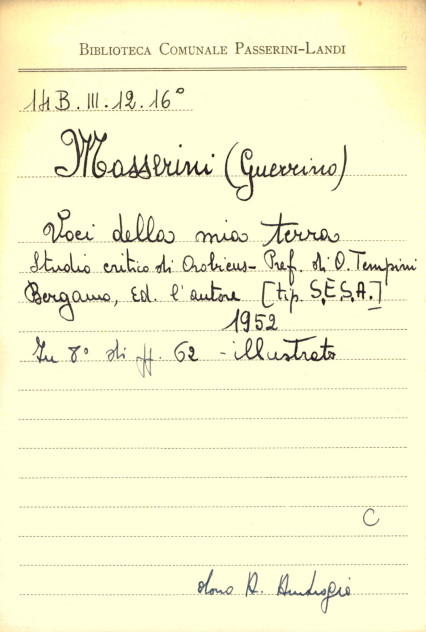 BIBLIOTECA COMUNALE PASSERINI-LANDI
14 B. III. 12. 16°
Masserini (Guerrino)
Voci della mia terra
Studio critico di Orobicus - Pref. di O. Tempini
Bergamo, Ed. l'autore [tip. S.E.S.A.]
1952
In 8° di ff. 62 - illustrato
C
dono A. Ambrogio